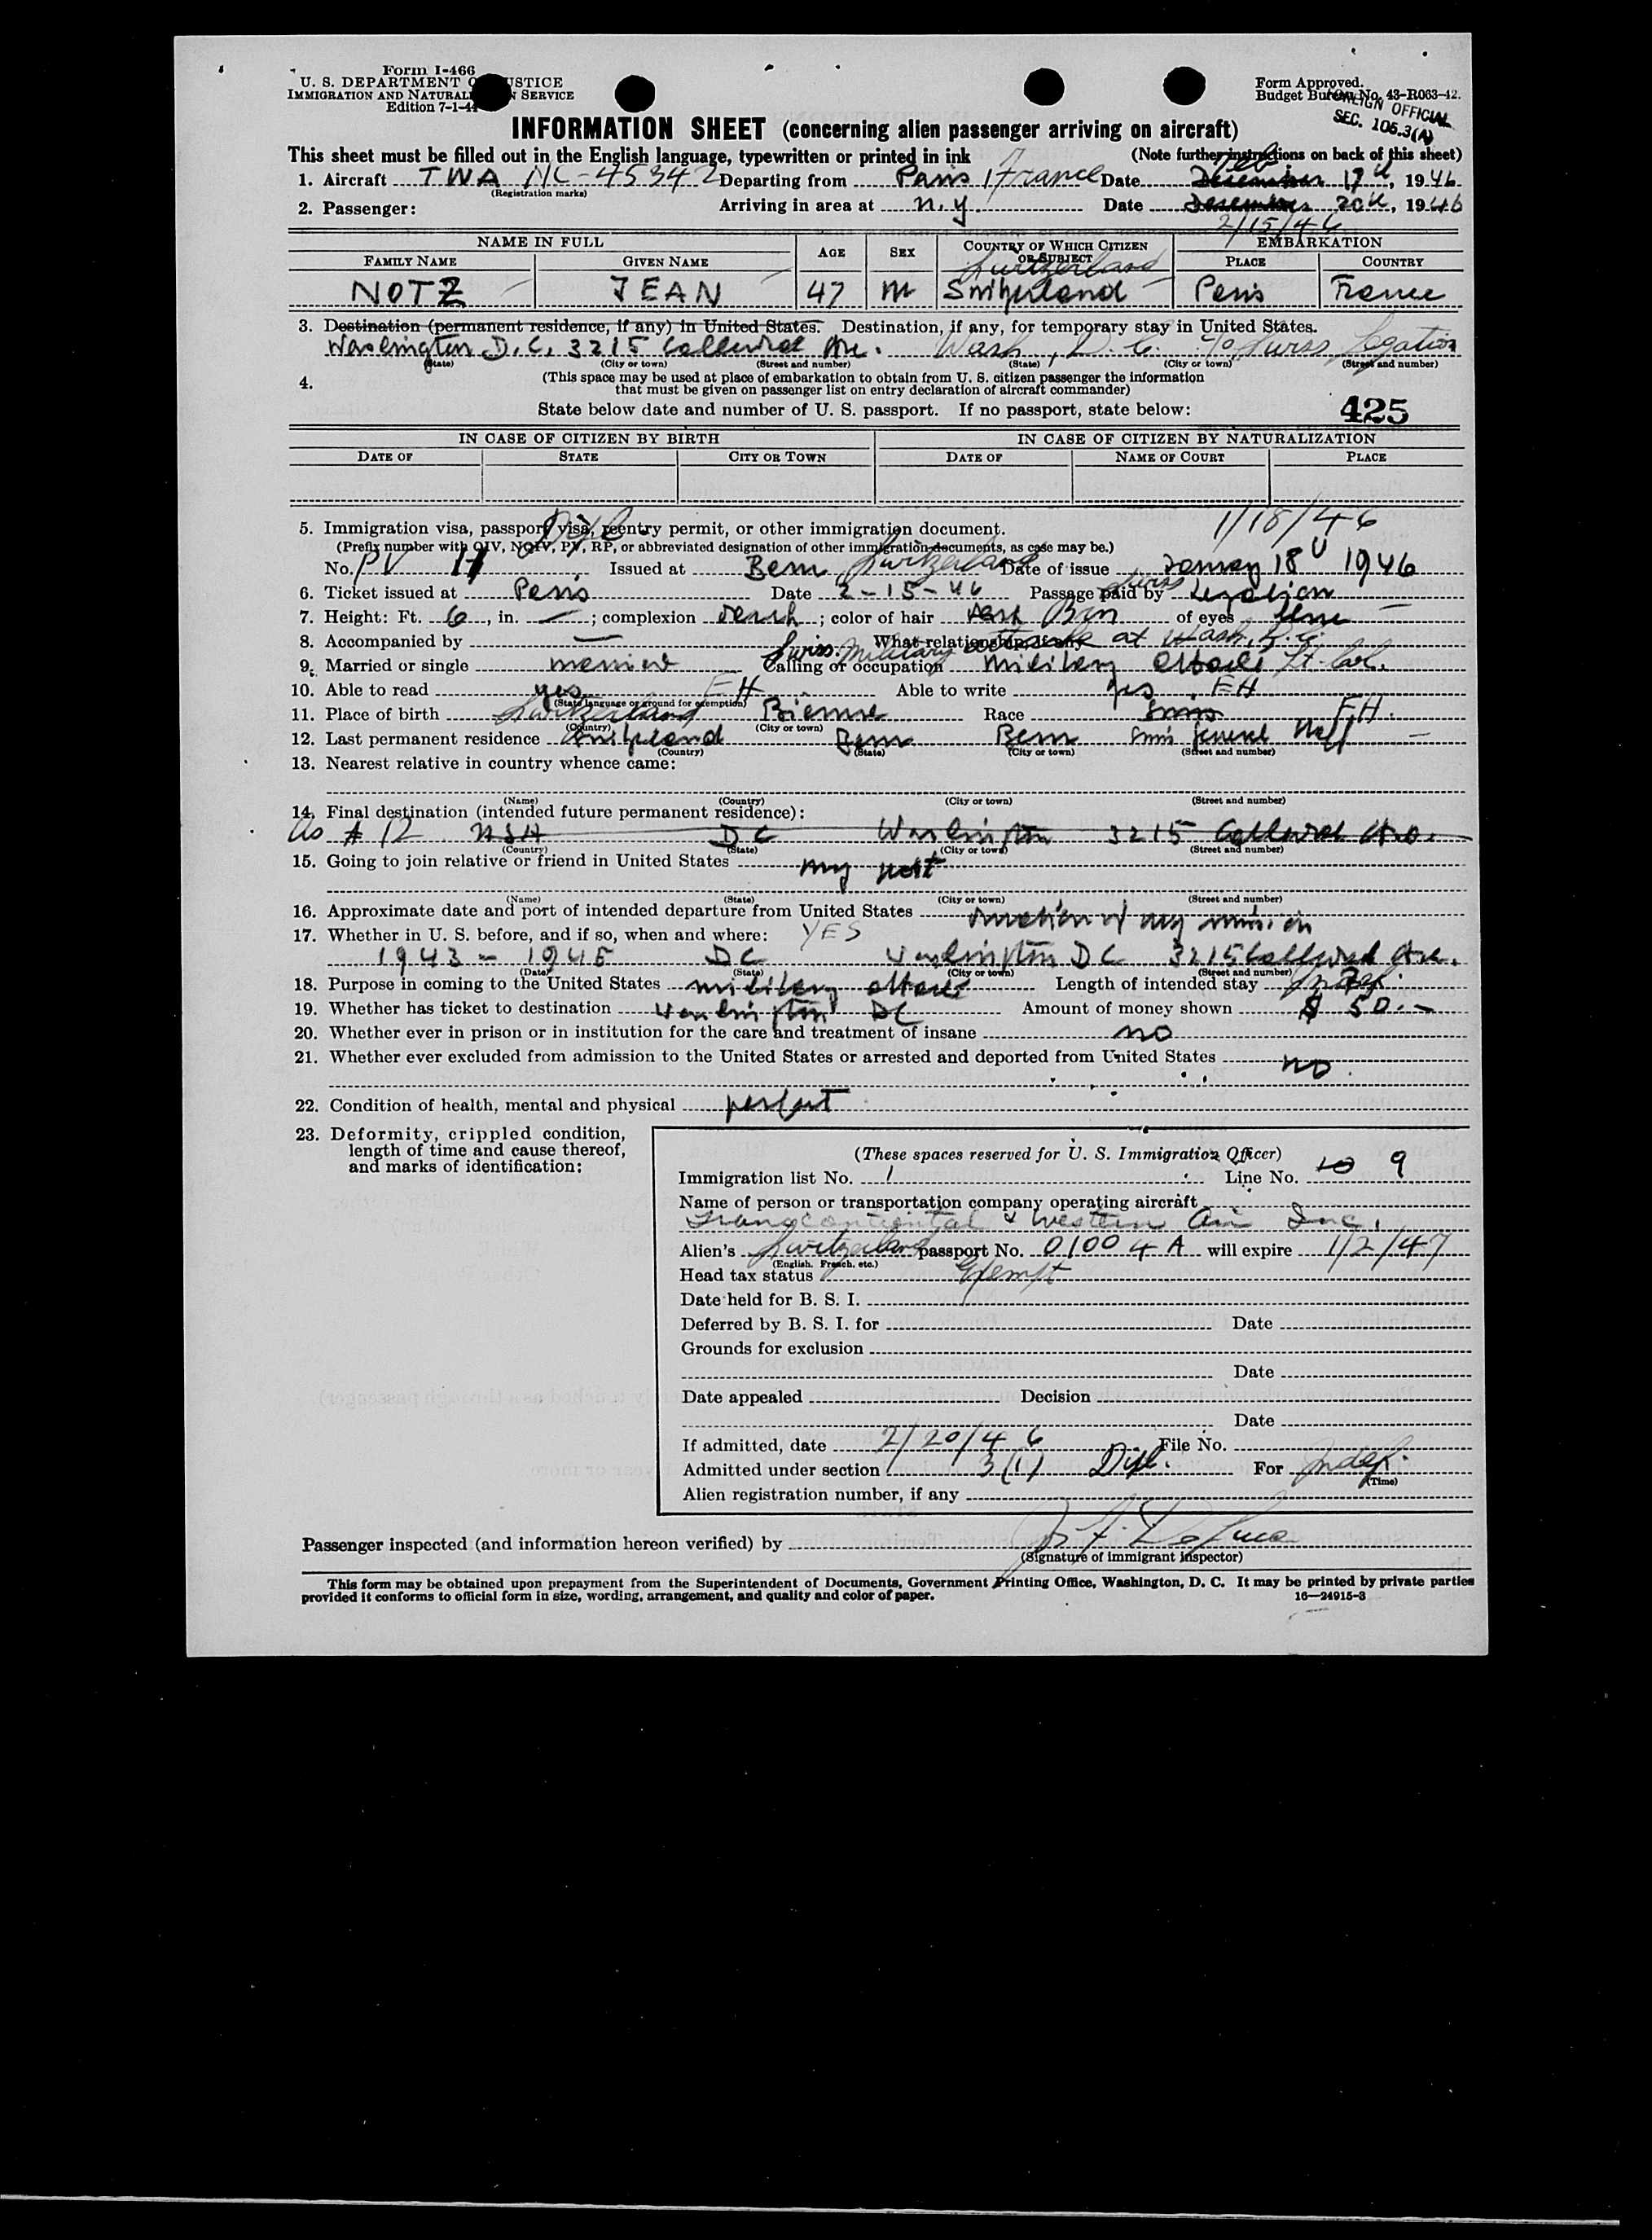 Form I-466
U. S. DEPARTMENT O USTICE
IMMIGRATION AND NATURAL N SERVICE
Edition 7-1-44
Form Approved.
Budget Bureau No. 43-R063-42.
FOREIGN OFFICIAL
SEC. 105.3(A)
INFORMATION SHEET (concerning alien passenger arriving on aircraft)
This sheet must be filled out in the English language, typewritten or printed in ink (Note further instructions on back of this sheet)
1. Aircraft TWA NC-45342 Departing from Paris, France Date Feb December 19 46
(Registration marks)
2. Passenger: Arriving in area at N.Y. Date December 20th, 1946
2/15/46
NAME IN FULL AGE SEX COUNTRY OF WHICH CITIZEN OR SUBJECT EMBARKATION
FAMILY NAME GIVEN NAME PLACE COUNTRY
Switzerland
NOTZ JEAN 47 M Switzerland Paris France
3. Destination (permanent residence, if any) in United States. Destination, if any, for temporary stay in United States.
Washington D.C. 3215 Ave. Wash., D.C. c/o Swiss Legation
(State) (City or town) (Street and number) (State) (City or town) (Street and number)
4. (This space may be used at place of embarkation to obtain from U. S. citizen passenger the information
that must be given on passenger list on entry declaration of aircraft commander)
State below date and number of U. S. passport. If no passport, state below: 425
IN CASE OF CITIZEN BY BIRTH IN CASE OF CITIZEN BY NATURALIZATION
DATE OF STATE CITY OR TOWN DATE OF NAME OF COURT PLACE
5. Immigration visa, passport visa, reentry permit, or other immigration document. Dipl 1/18/46
(Prefix number with QIV, NQIV, PV, RP, or abbreviated designation of other immigration documents, as case may be.)
No. PV 17 Issued at Bern Switzerland Date of issue January 18th 1946
6. Ticket issued at Paris Date 2-15-46 Passage paid by Swiss Legation
7. Height: Ft. 6, in. —; complexion ; color of hair dark Brn of eyes blue
8. Accompanied by — What relationship, if any
Swiss Military attache at Wash. D.C.
9. Married or single married Calling or occupation military attaché Lt. Col.
10. Able to read yes EH Able to write yes EH
(State language or ground for exemption)
11. Place of birth Switzerland Bienne Race Swiss EH.
(Country) (City or town)
12. Last permanent residence Switzerland Bern Bern Swiss general Staff —
(Country) (State) (City or town) (Street and number)
13. Nearest relative in country whence came:
(Name) (Country) (City or town) (Street and number)
14. Final destination (intended future permanent residence):
As # 12 USA DC Washington 3215 Ave.
(Country) (State) (City or town) (Street and number)
15. Going to join relative or friend in United States my post
(Name) (State) (City or town) (Street and number)
16. Approximate date and port of intended departure from United States duration of my mission
17. Whether in U. S. before, and if so, when and where: YES
1943 - 1945 DC Washington DC 3215 Ave.
(Date) (State) (City or town) (Street and number)
18. Purpose in coming to the United States military attaché Length of intended stay Indef.
19. Whether has ticket to destination Washington DC Amount of money shown $ 50.—
20. Whether ever in prison or in institution for the care and treatment of insane no
21. Whether ever excluded from admission to the United States or arrested and deported from United States no.
22. Condition of health, mental and physical perfect
23. Deformity, crippled condition,
length of time and cause thereof,
and marks of identification:
(These spaces reserved for U. S. Immigration Officer)
Immigration list No. 1 Line No. 10 9
Name of person or transportation company operating aircraft
Transcontinental & Western Air Inc.
Alien's Switzerland passport No. 01004A will expire 1/2/47
(English, French, etc.)
Head tax status Exempt
Date held for B. S. I.
Deferred by B. S. I. for Date
Grounds for exclusion
Date
Date appealed Decision
Date
If admitted, date 2/20/46 File No.
Admitted under section 3(1) Dipl. For Indef.
(Time)
Alien registration number, if any
Passenger inspected (and information hereon verified) by
(Signature of immigrant inspector)
This form may be obtained upon prepayment from the Superintendent of Documents, Government Printing Office, Washington, D. C. It may be printed by private parties
provided it conforms to official form in size, wording, arrangement, and quality and color of paper. 16—24915-3